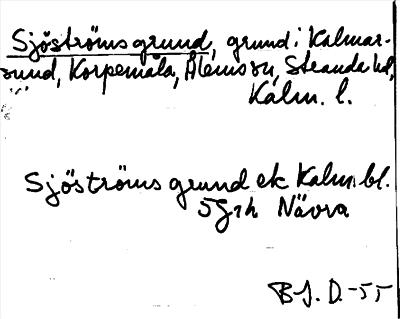 Sjöströms grund, grund i Kalmar-
sund, Korpemåla, Ålems sn, Stranda hd,
Kalm. l.
Sjöströms grund ek Kalm. bl.
5G1h Nävra
B-J. D. -55